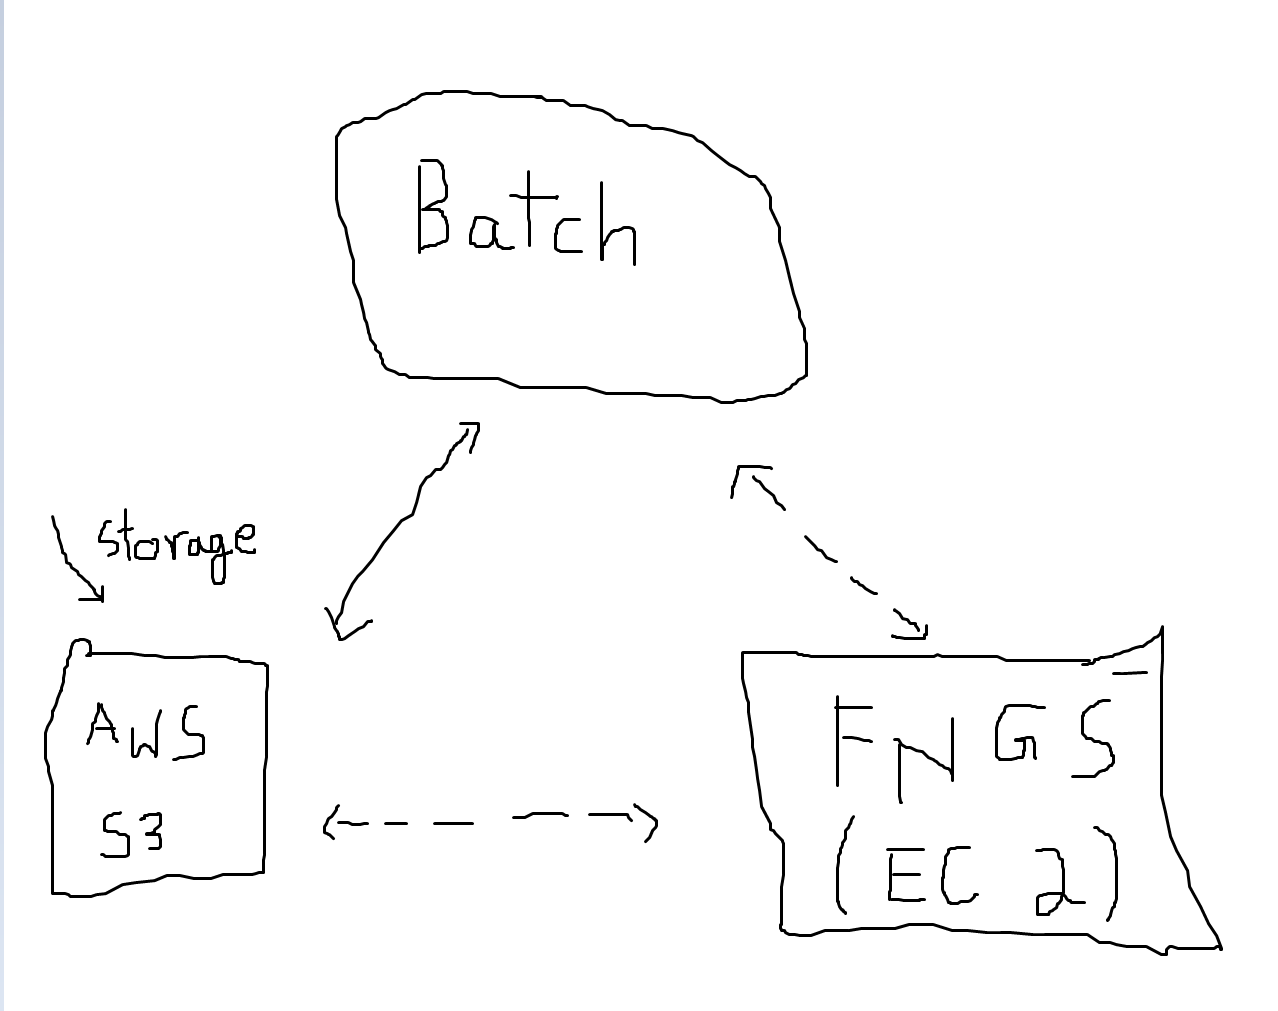 Batch
storage
AWS
S3
FNGS
(EC2)